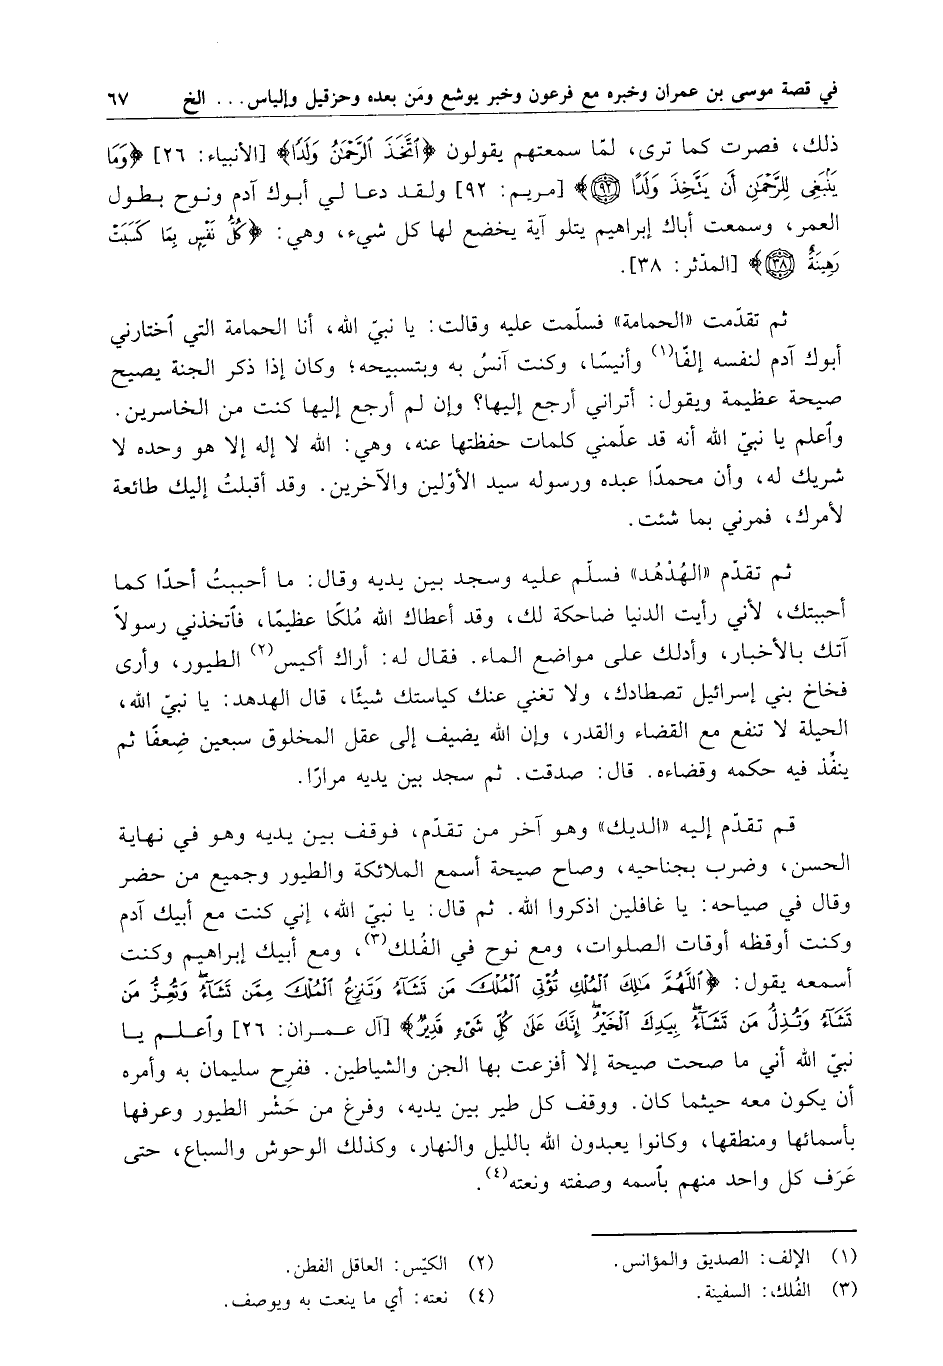 في قصة موسى بن عمران وخبره مع فرعون وخبر يوشع ومَن بعده وحزقيل وإلياس... الخ ٦٧
ذلك، فصرت كما ترى، لمّا سمعتهم يقولون ﴿ٱتَّخَذَ ٱلرَّحْمَٰنُ وَلَدًا﴾ [الأنبياء: ٢٦] ﴿وَمَا
يَنۢبَغِى لِلرَّحْمَٰنِ أَن يَتَّخِذَ وَلَدًا ۝٩٢﴾ [مريم: ٩٢] ولقد دعا لي أبوك آدم ونوح بطول
العمر، وسمعت أباك إبراهيم يتلو آية يخضع لها كل شيء، وهي: ﴿كُلُّ نَفْسٍۭ بِمَا كَسَبَتْ
رَهِينَةٌ ۝٣٨﴾ [المدّثر: ٣٨].
ثم تقدّمت «الحمامة» فسلّمت عليه وقالت: يا نبيّ الله، أنا الحمامة التي ٱختارني
أبوك آدم لنفسه إلفًا(١) وأنيسًا، وكنت آنسُ به وبتسبيحه؛ وكان إذا ذكر الجنة يصيح
صيحة عظيمة ويقول: أتراني أرجع إليها؟ وإن لم أرجع إليها كنت من الخاسرين.
وٱعلم يا نبيّ الله أنه قد علّمني كلمات حفظتها عنه، وهي: الله لا إله إلا هو وحده لا
شريك له، وأن محمدًا عبده ورسوله سيد الأوّلين والآخرين. وقد أقبلتُ إليك طائعة
لأمرك، فمرني بما شئت.
ثم تقدّم «الهُدْهُد» فسلّم عليه وسجد بين يديه وقال: ما أحببتُ أحدًا كما
أحببتك، لأني رأيت الدنيا ضاحكة لك، وقد أعطاك الله مُلكًا عظيمًا، فٱتخذني رسولاً
آتك بالأخبار، وأدلك على مواضع الماء. فقال له: أراك أكيس(٢) الطيور، وأرى
فخاخ بني إسرائيل تصطادك، ولا تغني عنك كياستك شيئًا، قال الهدهد: يا نبيّ الله،
الحيلة لا تنفع مع القضاء والقدر، وإن الله يضيف إلى عقل المخلوق سبعين ضِعفًا ثم
ينفُذ فيه حكمه وقضاءه. قال: صدقت. ثم سجد بين يديه مرارًا.
قم تقدّم إليه «الديك» وهو آخر من تقدّم، فوقف بين يديه وهو في نهاية
الحسن، وضرب بجناحيه، وصاح صيحة أسمع الملائكة والطيور وجميع من حضر
وقال في صياحه: يا غافلين اذكروا الله. ثم قال: يا نبيّ الله، إني كنت مع أبيك آدم
وكنت أوقظه أوقات الصلوات، ومع نوح في الفُلك(٣)، ومع أبيك إبراهيم وكنت
أسمعه يقول: ﴿ٱللَّهُمَّ مَٰلِكَ ٱلْمُلْكِ تُؤْتِى ٱلْمُلْكَ مَن تَشَآءُ وَتَنزِعُ ٱلْمُلْكَ مِمَّن تَشَآءُ وَتُعِزُّ مَن
تَشَآءُ وَتُذِلُّ مَن تَشَآءُ بِيَدِكَ ٱلْخَيْرُ إِنَّكَ عَلَىٰ كُلِّ شَىْءٍ قَدِيرٌ﴾ [آل عمران: ٢٦] وٱعلم يا
نبيّ الله أني ما صحت صيحة إلا أفزعت بها الجن والشياطين. ففرح سليمان به وأمره
أن يكون معه حيثما كان. ووقف كل طير بين يديه، وفرغ من حَشْر الطيور وعرفها
بأسمائها ومنطقها، وكانوا يعبدون الله بالليل والنهار، وكذلك الوحوش والسباع، حتى
عَرَف كل واحد منهم بٱسمه وصفته ونعته(٤).
(١) الإلف: الصديق والمؤانس.
(٢) الكيّس: العاقل الفطن.
(٣) الفُلك: السفينة.
(٤) نعته: أي ما ينعت به ويوصف.